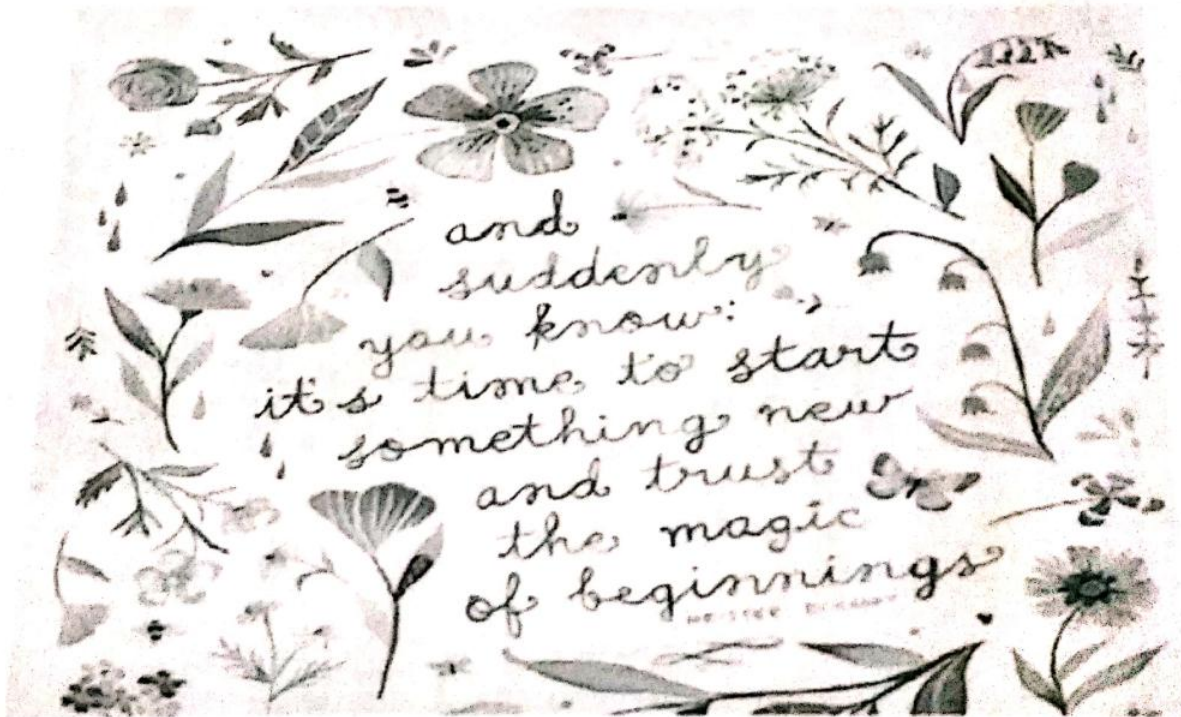 and
suddenly
you know:
it's time to start
something new
and trust
the magic
of beginnings
MEISTER ECKHART